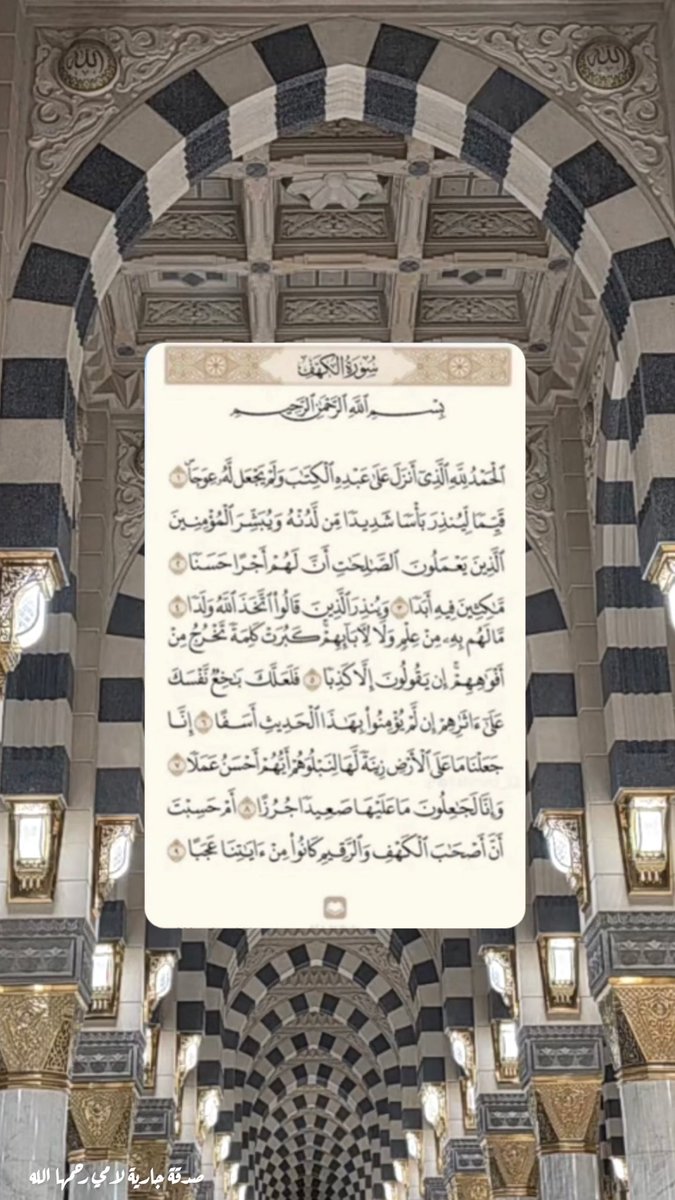 الله
الله
سُورَةُ الكَهْفِ
بِسْمِ اللَّهِ الرَّحْمَٰنِ الرَّحِيمِ
الْحَمْدُ لِلَّهِ الَّذِي أَنزَلَ عَلَىٰ عَبْدِهِ الْكِتَابَ وَلَمْ يَجْعَل لَّهُ عِوَجًا ١
قَيِّمًا لِّيُنذِرَ بَأْسًا شَدِيدًا مِّن لَّدُنْهُ وَيُبَشِّرَ الْمُؤْمِنِينَ
الَّذِينَ يَعْمَلُونَ الصَّالِحَاتِ أَنَّ لَهُمْ أَجْرًا حَسَنًا ٢
مَّاكِثِينَ فِيهِ أَبَدًا ٣ وَيُنذِرَ الَّذِينَ قَالُوا اتَّخَذَ اللَّهُ وَلَدًا ٤
مَّا لَهُم بِهِ مِنْ عِلْمٍ وَلَا لِآبَائِهِمْ ۚ كَبُرَتْ كَلِمَةً تَخْرُجُ مِنْ
أَفْوَاهِهِمْ ۚ إِن يَقُولُونَ إِلَّا كَذِبًا ٥ فَلَعَلَّكَ بَاخِعٌ نَّفْسَكَ
عَلَىٰ آثَارِهِمْ إِن لَّمْ يُؤْمِنُوا بِهَٰذَا الْحَدِيثِ أَسَفًا ٦ إِنَّا
جَعَلْنَا مَا عَلَى الْأَرْضِ زِينَةً لَّهَا لِنَبْلُوَهُمْ أَيُّهُمْ أَحْسَنُ عَمَلًا ٧
وَإِنَّا لَجَاعِلُونَ مَا عَلَيْهَا صَعِيدًا جُرُزًا ٨ أَمْ حَسِبْتَ
أَنَّ أَصْحَابَ الْكَهْفِ وَالرَّقِيمِ كَانُوا مِنْ آيَاتِنَا عَجَبًا ٩
صدقة جارية لامي رحمها الله